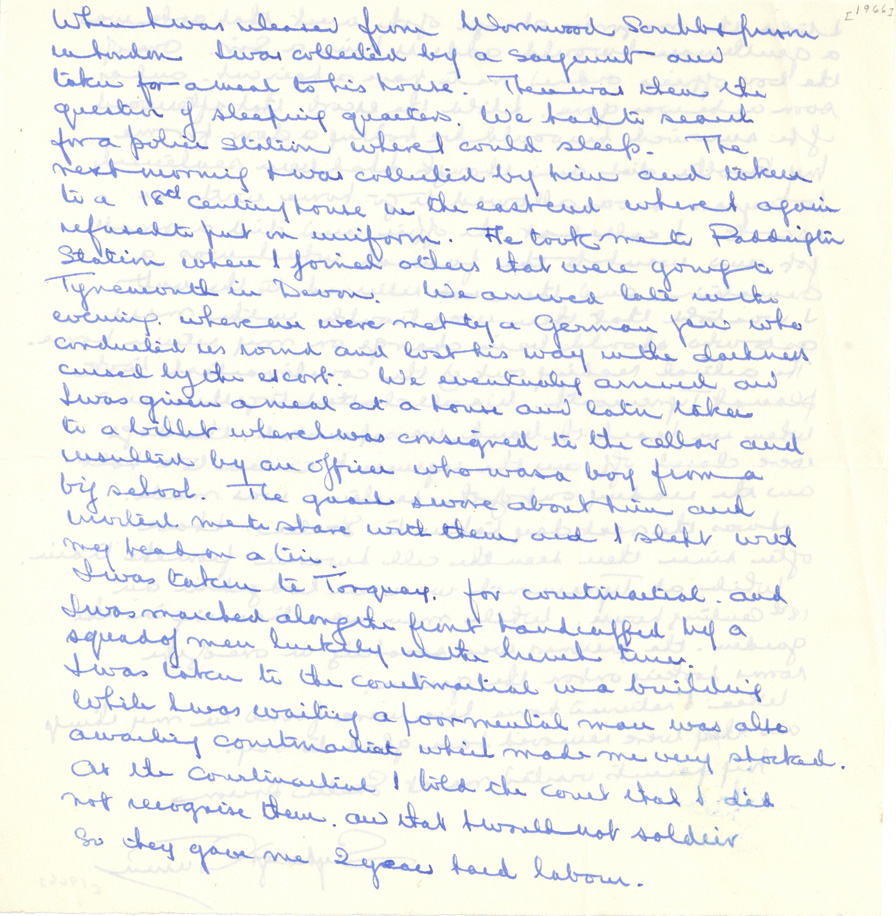 [1966]
When I was released from Wormwood Scrubbs prison
in London I was collected by a sargent and
taken for a meal to his house. There was then the
question of sleeping quarters. We had to search
for a police station where I could sleep. The
next morning I was collected by him and taken
to a 18th century house in the east end where I again
refused to put on uniform. He took me to Paddington
Station where I joined others that were going to
Tynemouth in Devon. We arrived late in the
evening. where we were met by a German jew who
conducted us round and lost his way in the darkness
cursed by the escort. We eventually arrived and
I was given a meal at a house and later taken
to a billet where I was consigned to the cellar and
insulted by an officer who was a boy from a
big school. The guard swore about him and
invited me to share with them and I slept with
my head on a tin.
I was taken to Torquay. for courtmartial. and
I was marched along the front handcuffed by a
squad of men luckily in the lunch time.
I was taken to the courtmartial in a building
While I was waiting a poor mental man was also
awaiting courtmartial which made me very shocked.
At the Courtmartial I told the court that I did
not recognise them. and that I would not soldier
So they gave me 2 years hard labour.